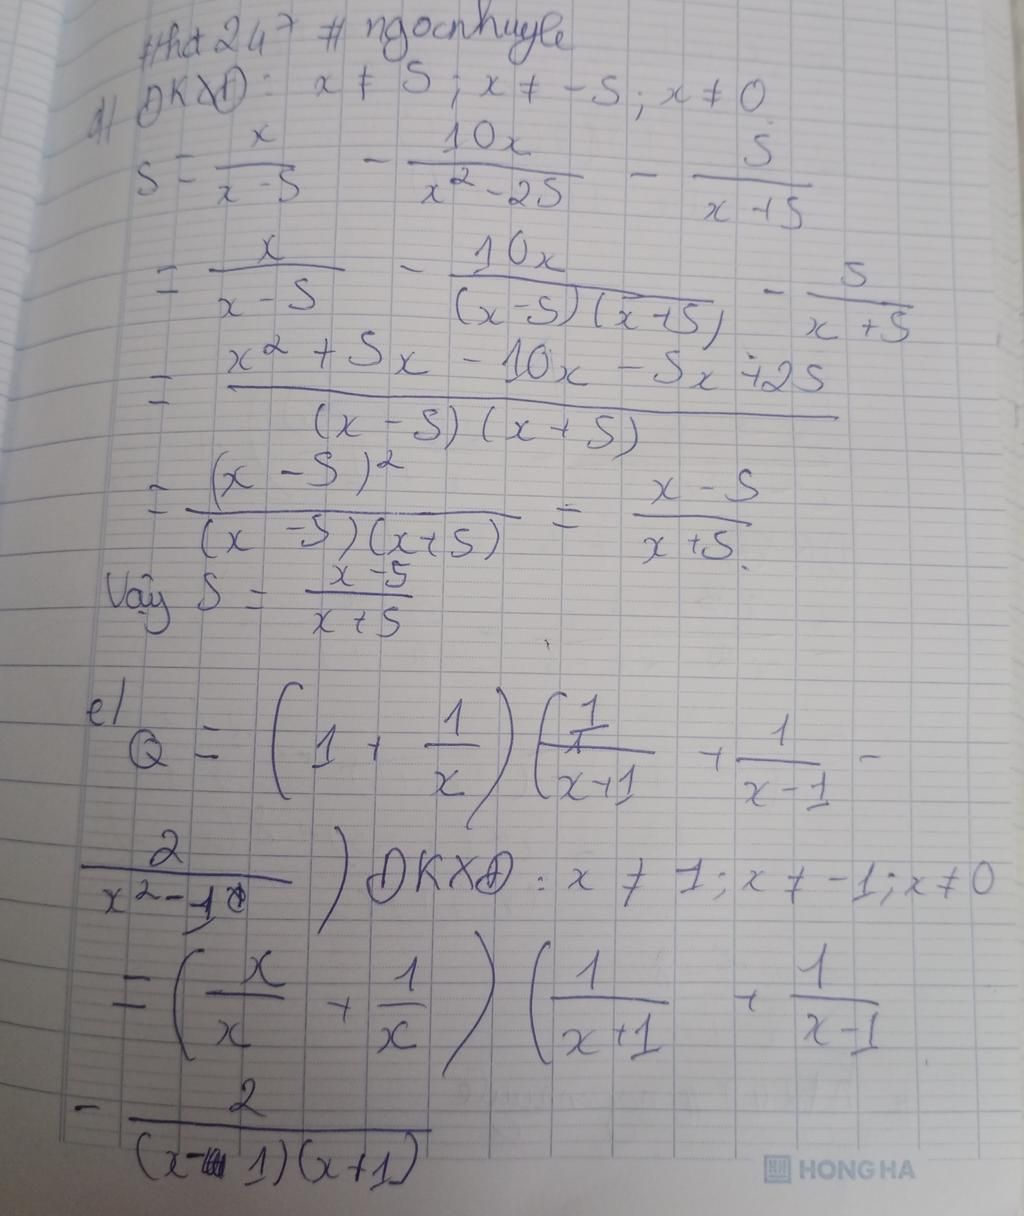 #hd 247 # ngocnhuye
d/ ĐKXĐ: x ≠ 5; x ≠ -5; x ≠ 0
S = x/(x-5) - 10x/(x²-25) - 5/(x+5)
= x/(x-5) - 10x/((x-5)(x+5)) - 5/(x+5)
= (x² + 5x - 10x - 5x + 25)/((x-5)(x+5))
= (x-5)²/((x-5)(x+5)) = (x-5)/(x+5).
Vậy S = (x-5)/(x+5)
e/ Q = (1 + 1/x) (1/(x+1) + 1/(x-1) -
2/(x²-1)) ĐKXĐ: x ≠ 1; x ≠ -1; x ≠ 0
= (x/x + 1/x) (1/(x+1) + 1/(x-1)
- 2/((x-1)(x+1)
HONG HA